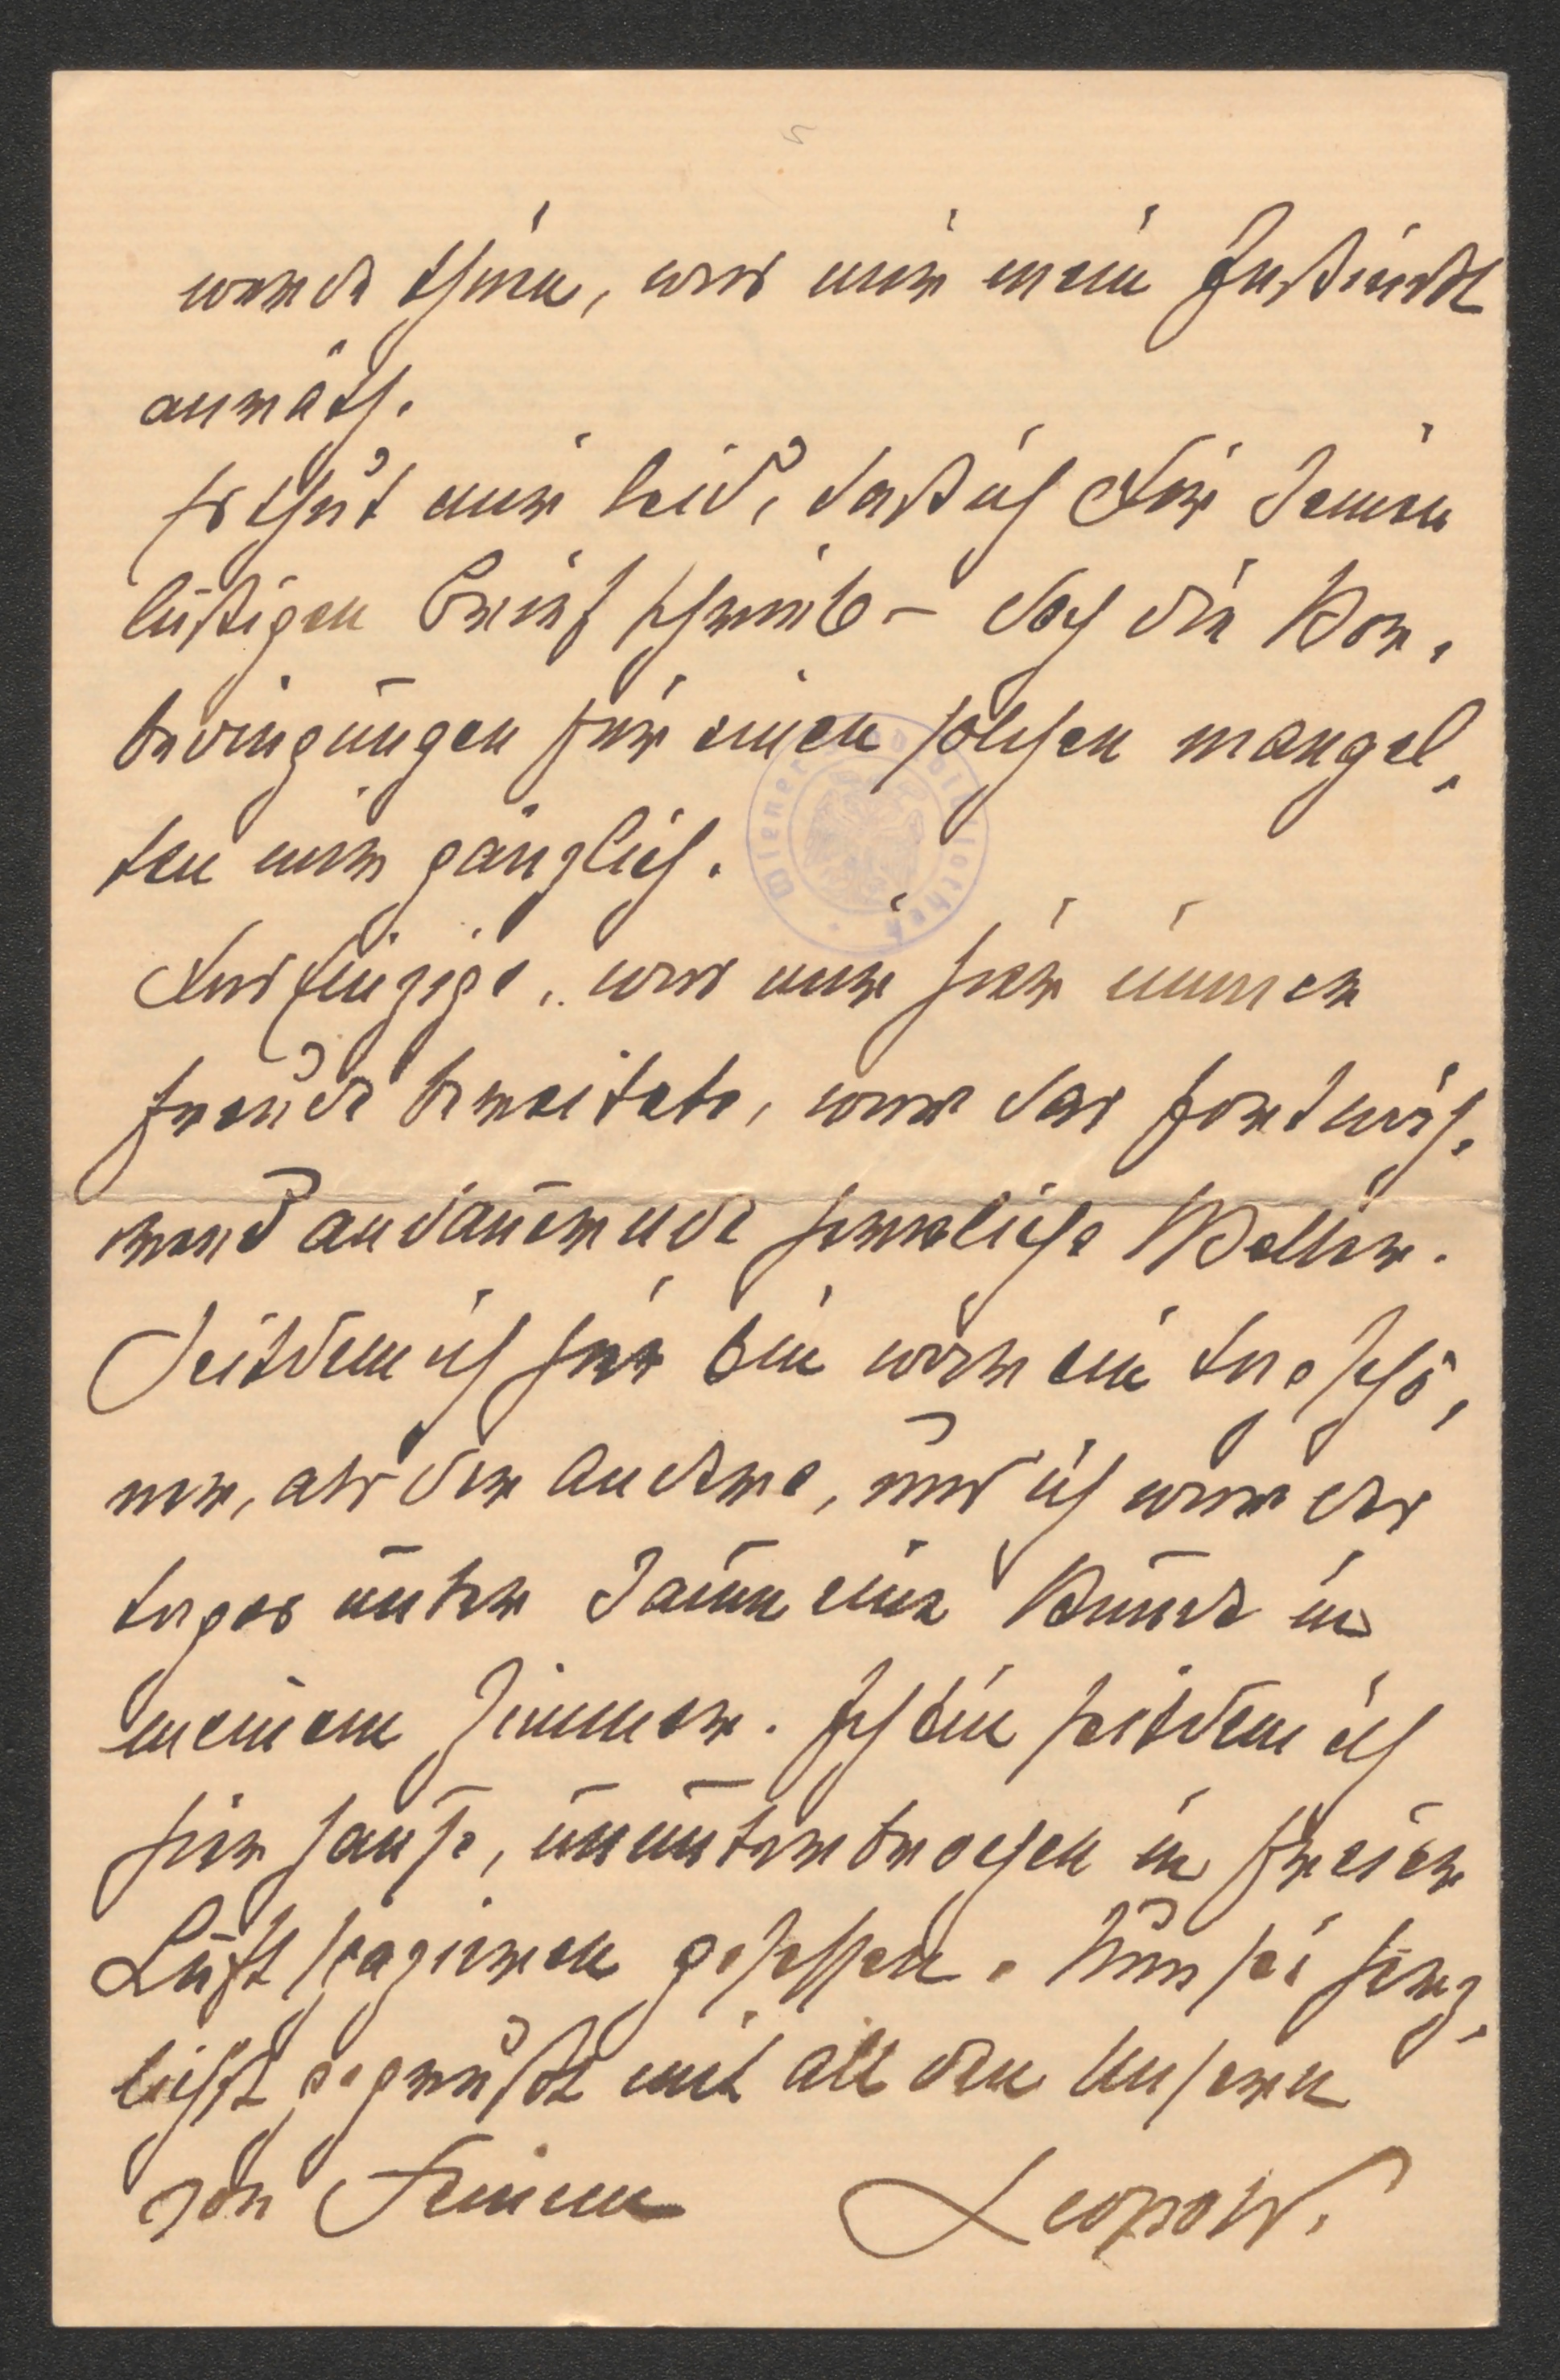 werde thun, was mir mein Instinckt
anräth.
Es thut mir leid, daß ich Dir keinen
lustigen Brief schreib – doch die Vor-
bedingungen für einen solchen mangel-
ten mir gänzlich.
Das Einzige, was mir hier immer
Freude bereitete, war das fortwäh-
rend andauernde herrliche Wetter.
Seitdem ich hier bin war ein Tag schö-
ner, als der Andere, und ich war des
Tages über kaum eine Stunde in
meinem Zimmer. Ich bin seitdem ich
hier hause, ununterbrochen in freier
Luft spazieren gesessen. Nun sei herz-
lichst gegrüßt mit all den Unseren
von Deinem Leopold.
Wiener Stadtbibliothek